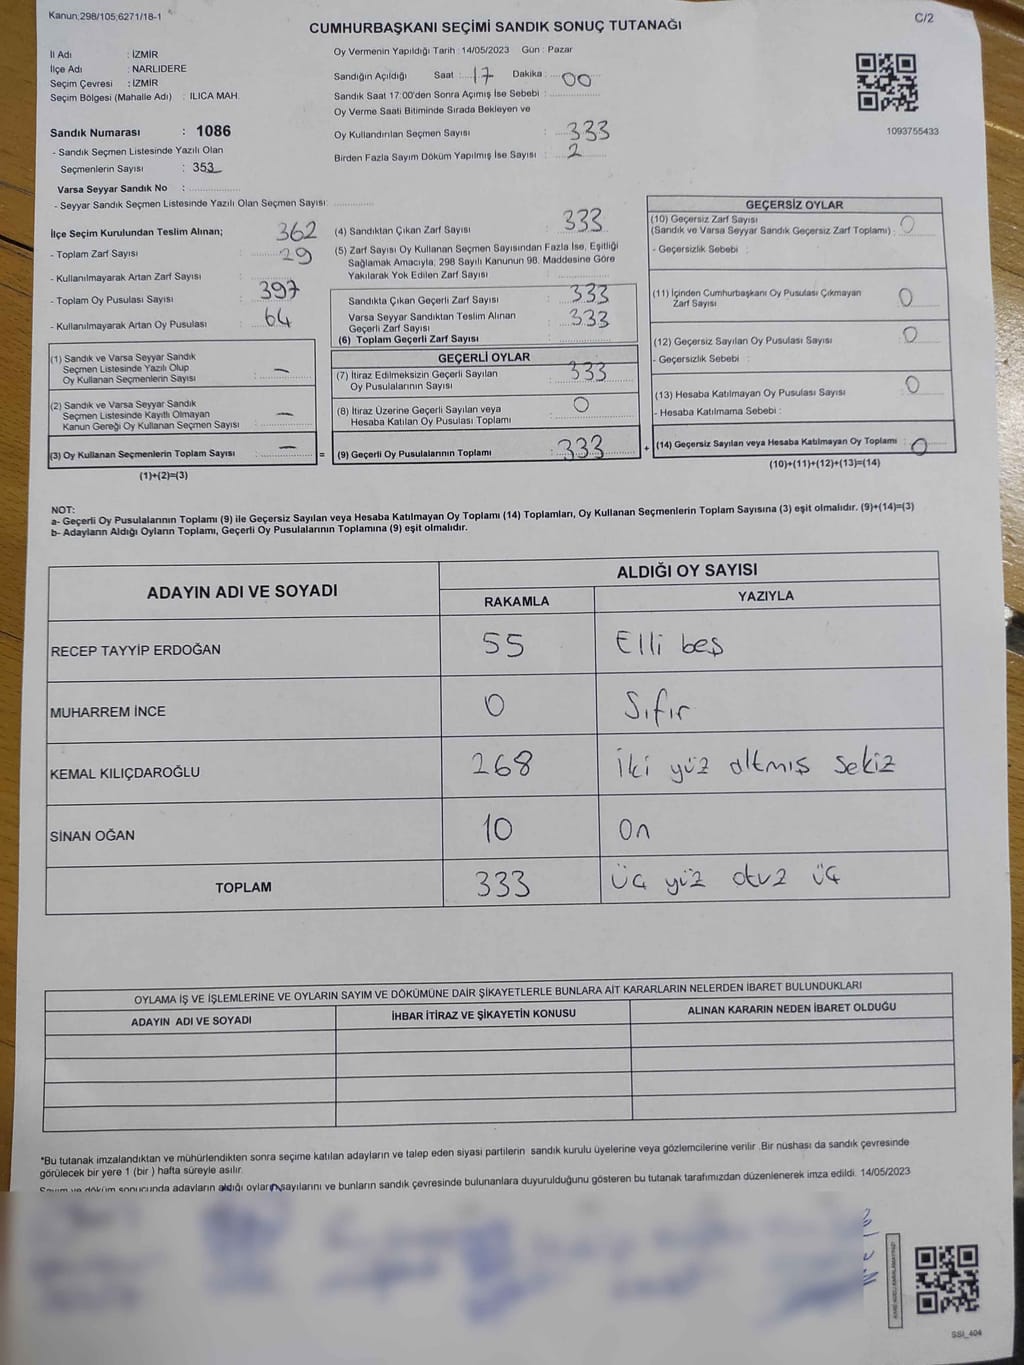 Kanun;298/105;6271/18-1
C/2
CUMHURBAŞKANI SEÇİMİ SANDIK SONUÇ TUTANAĞI
İl Adı : İZMİR
İlçe Adı : NARLIDERE
Seçim Çevresi : İZMİR
Seçim Bölgesi (Mahalle Adı) : ILICA MAH.
Sandık Numarası : 1086
- Sandık Seçmen Listesinde Yazılı Olan
Seçmenlerin Sayısı : 353
Varsa Seyyar Sandık No :
- Seyyar Sandık Seçmen Listesinde Yazılı Olan Seçmen Sayısı:
Oy Vermenin Yapıldığı Tarih : 14/05/2023 Gün : Pazar
Sandığın Açıldığı Saat : 17 Dakika : 00
Sandık Saat 17:00'den Sonra Açımış İse Sebebi :
Oy Verme Saati Bitiminde Sırada Bekleyen ve
Oy Kullandırılan Seçmen Sayısı : 333
Birden Fazla Sayım Döküm Yapılmış İse Sayısı : 2
1093755433
İlçe Seçim Kurulundan Teslim Alınan; 362
- Toplam Zarf Sayısı : 29
- Kullanılmayarak Artan Zarf Sayısı
- Toplam Oy Pusulası Sayısı : 397
- Kullanılmayarak Artan Oy Pusulası : 64
(1) Sandık ve Varsa Seyyar Sandık
Seçmen Listesinde Yazılı Olup
Oy Kullanan Seçmenlerin Sayısı : -
(2) Sandık ve Varsa Seyyar Sandık
Seçmen Listesinde Kayıtlı Olmayan
Kanun Gereği Oy Kullanan Seçmen Sayısı : -
(3) Oy Kullanan Seçmenlerin Toplam Sayısı : - =
(1)+(2)=(3)
(4) Sandıktan Çıkan Zarf Sayısı : 333
(5) Zarf Sayısı Oy Kullanan Seçmen Sayısından Fazla İse, Eşitliği
Sağlamak Amacıyla; 298 Sayılı Kanunun 98. Maddesine Göre
Yakılarak Yok Edilen Zarf Sayısı :
Sandıkta Çıkan Geçerli Zarf Sayısı : 333
Varsa Seyyar Sandıktan Teslim Alınan
Geçerli Zarf Sayısı : 333
(6) Toplam Geçerli Zarf Sayısı :
GEÇERLİ OYLAR
(7) İtiraz Edilmeksizin Geçerli Sayılan
Oy Pusulalarının Sayısı : 333
(8) İtiraz Üzerine Geçerli Sayılan veya
Hesaba Katılan Oy Pusulası Toplamı : 0
(9) Geçerli Oy Pusulalarının Toplamı : 333 +
GEÇERSİZ OYLAR
(10) Geçersiz Zarf Sayısı
(Sandık ve Varsa Seyyar Sandık Geçersiz Zarf Toplamı) : 0
- Geçersizlik Sebebi :
(11) İçinden Cumhurbaşkanı Oy Pusulası Çıkmayan
Zarf Sayısı : 0
(12) Geçersiz Sayılan Oy Pusulası Sayısı : 0
- Geçersizlik Sebebi :
(13) Hesaba Katılmayan Oy Pusulası Sayısı : 0
- Hesaba Katılmama Sebebi :
(14) Geçersiz Sayılan veya Hesaba Katılmayan Oy Toplamı : 0
(10)+(11)+(12)+(13)=(14)
NOT:
a- Geçerli Oy Pusulalarının Toplamı (9) ile Geçersiz Sayılan veya Hesaba Katılmayan Oy Toplamı (14) Toplamları, Oy Kullanan Seçmenlerin Toplam Sayısına (3) eşit olmalıdır. (9)+(14)=(3)
b- Adayların Aldığı Oyların Toplamı, Geçerli Oy Pusulalarının Toplamına (9) eşit olmalıdır.
ADAYIN ADI VE SOYADI
ALDIĞI OY SAYISI
RAKAMLA YAZIYLA
RECEP TAYYİP ERDOĞAN 55 Elli beş
MUHARREM İNCE 0 Sıfır
KEMAL KILIÇDAROĞLU 268 İki yüz altmış sekiz
SİNAN OĞAN 10 On
TOPLAM 333 üç yüz otuz üç
OYLAMA İŞ VE İŞLEMLERİNE VE OYLARIN SAYIM VE DÖKÜMÜNE DAİR ŞİKAYETLERLE BUNLARA AİT KARARLARIN NELERDEN İBARET BULUNDUKLARI
ADAYIN ADI VE SOYADI İHBAR İTİRAZ VE ŞİKAYETİN KONUSU ALINAN KARARIN NEDEN İBARET OLDUĞU
*Bu tutanak imzalandıktan ve mühürlendikten sonra seçime katılan adayların ve talep eden siyasi partilerin sandık kurulu üyelerine veya gözlemcilerine verilir .Bir nüshası da sandık çevresinde
görülecek bir yere 1 (bir ) hafta süreyle asılır.
Sayım ve döküm sonucunda adayların aldığı oyların sayılarını ve bunların sandık çevresinde bulunanlara duyurulduğunu gösteren bu tutanak tarafımızdan düzenlenerek imza edildi. 14/05/2023
SSI_404